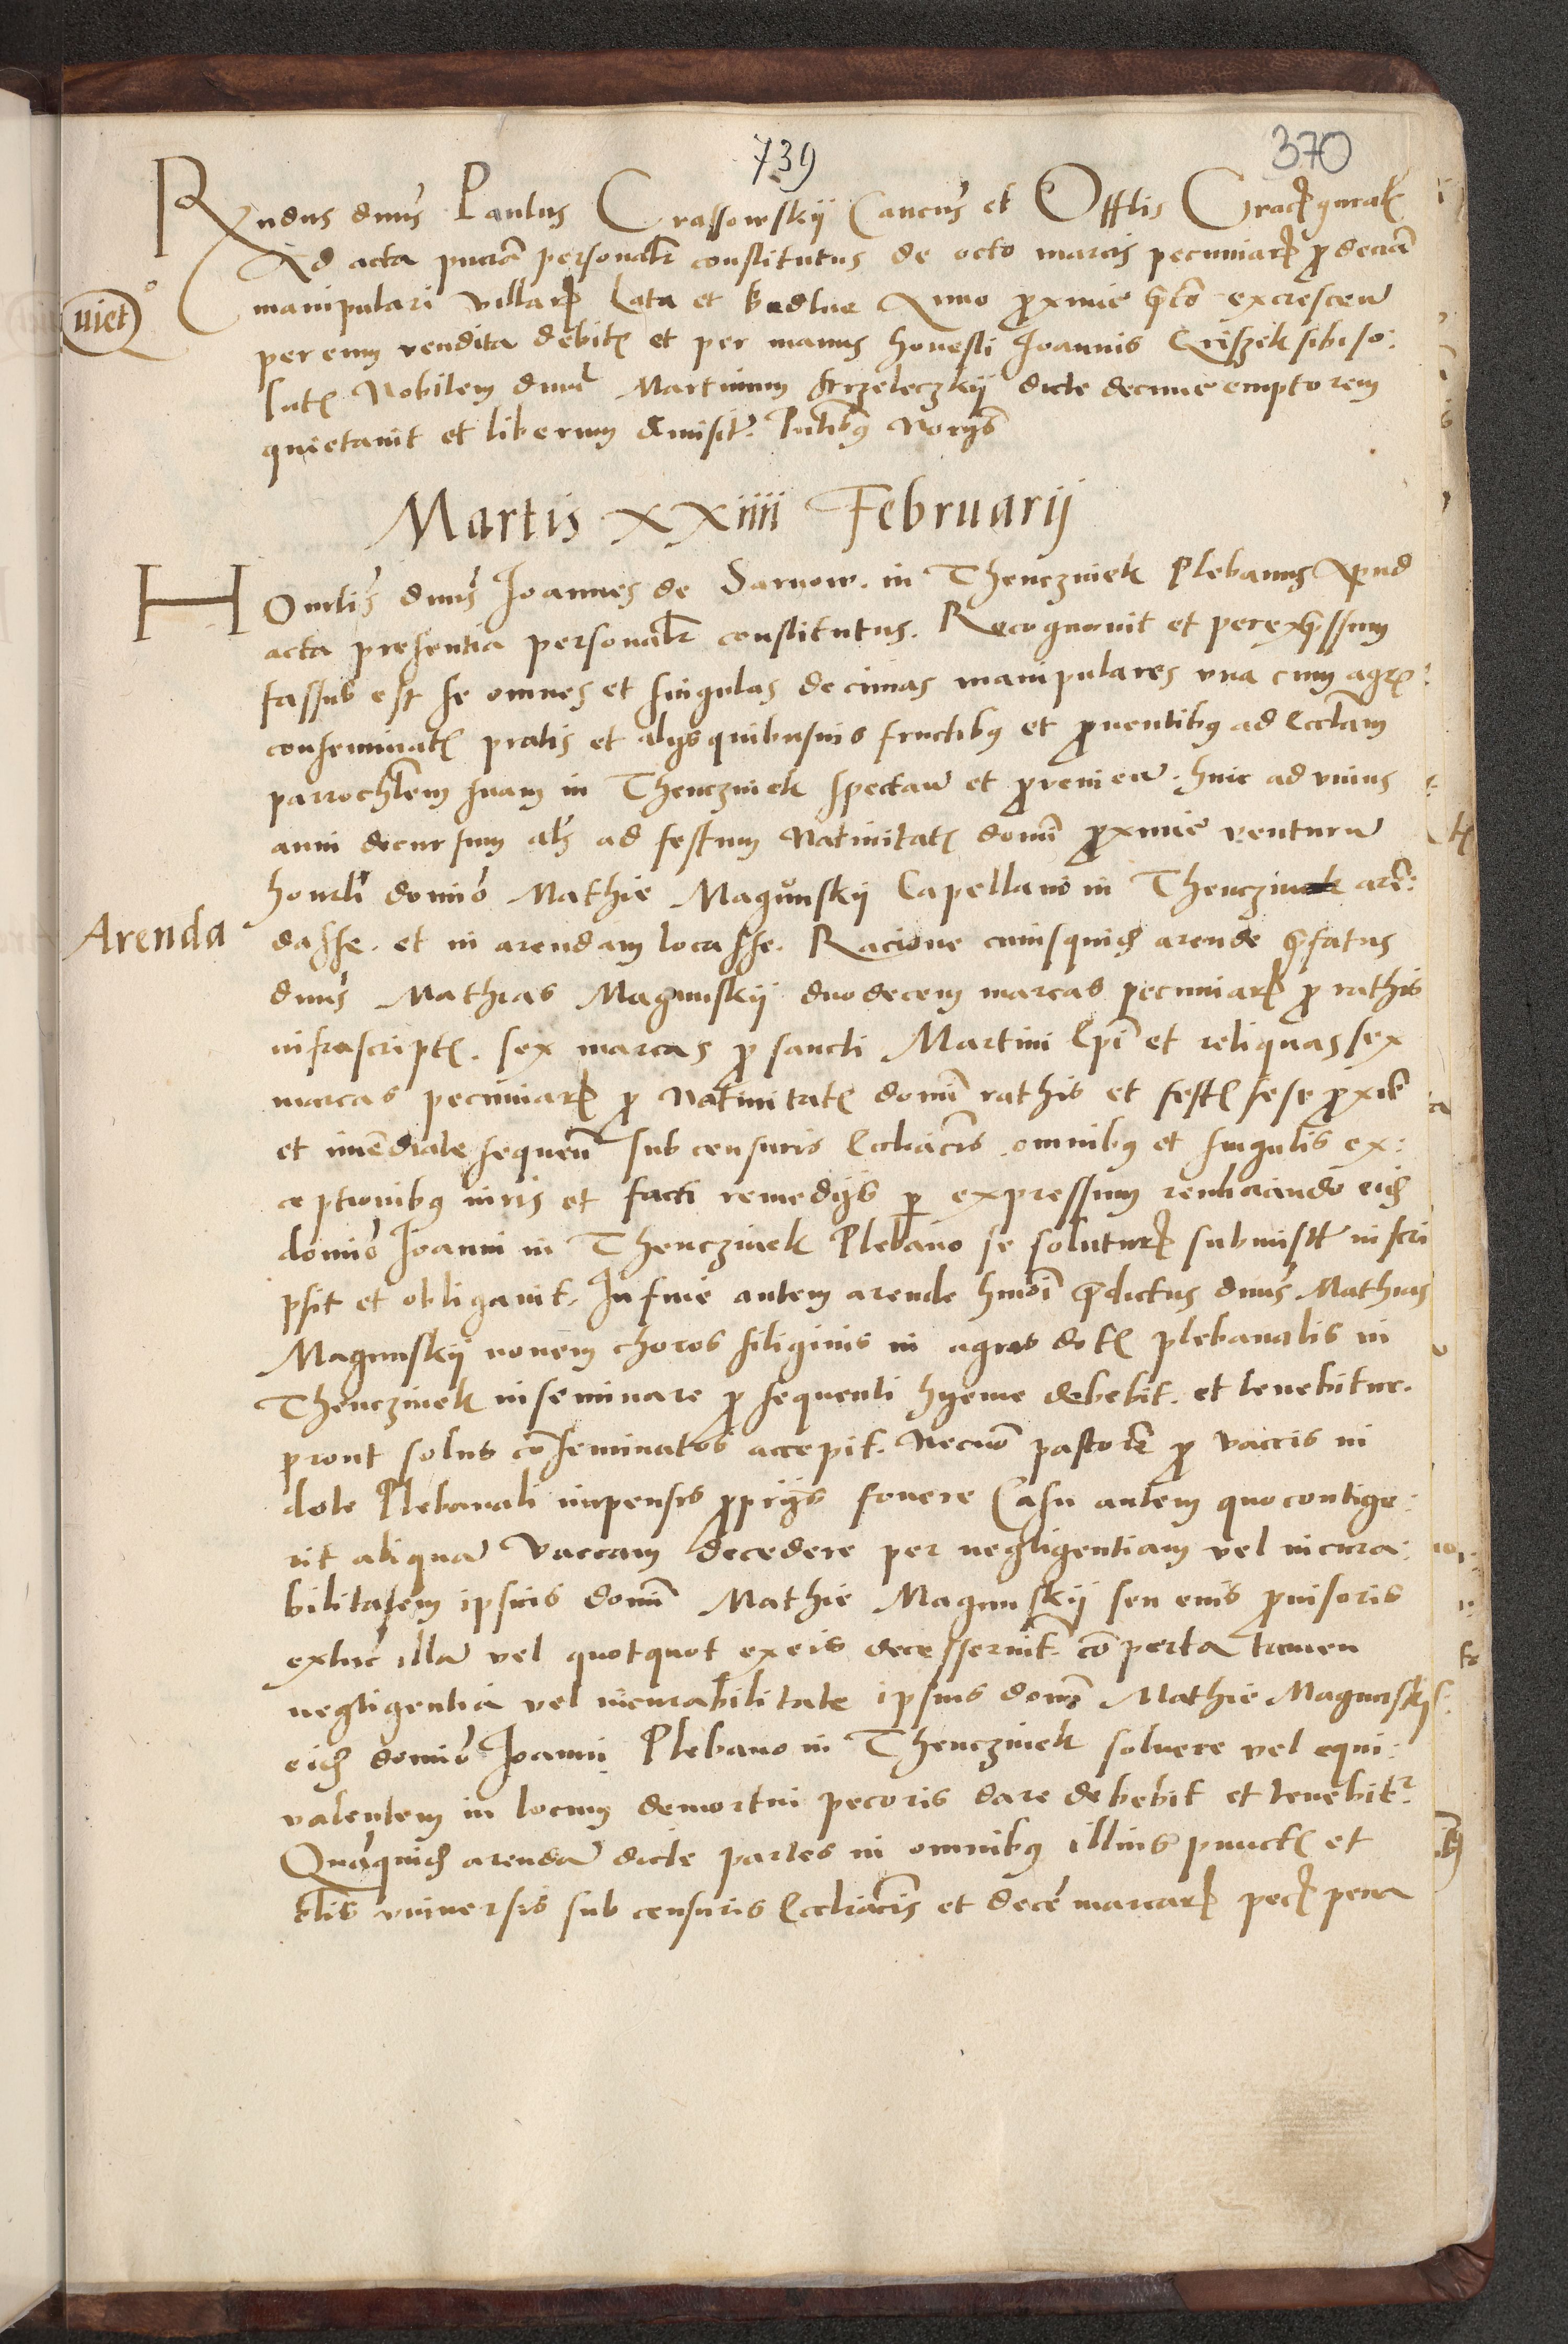 739
370
Rndus dnus Paulus Crassowskij Cancus et Offlis Crac gnral
Ad acta pncia personalr constitutus de octo marcis pecuniar p decia
uiet
manipulari villar Lata et Anno proxime pnto excrescen
per eum vendita debit et per manus honesti Joannis Criszek sibi so:
lut Nobilem dnum Martinum decime emptorem
quietavit et liberum dimisit. pntibus
Martis xxiiii Februarij
Honrlis dnus Joannes de Sarnow. in Thenczinek Plebanus Apud
acta presentia personalr constitutus. Recognovit et per expressum
fassus est se omnes et singulas decimas manipulares una cum agr:
conseminat pratis et alijs quibusuis fructibus et prouentibus ad Eccliam
parrochlem suam in Thenczinek spectan et provenien. hinc ad unius
anni decursum als ad festum Natiuitat domi proxime ventur
honrli domino Mathie Magunskij Capellano in Thenczinek aren:
Arenda
dasse. et in arendam locasse. Racione cuiusquid arende prefatus
dnus Mathias Magunskij duodecem marcas pecuniar p rathis
infrascript. sex marcas p sancti Martini Epi et reliquas sex
marcas pecuniar p Natiuitat domi rathis et fest sese proxie
et immediate sequen sub censuris Eccliacis omnibus et singulis ex:
ceptionibus iuris et facti remedijs per expressum renunciando eid
domino Joanni in Thenczinek Plebano se solutur submisit inscri
psit et obligauit. In fine autem arende hmoi predictus dnus Mathias
Magunskij nouem choros siliginis in agros dot plebanalis in
Thenczinek inseminare p sequenti hyeme debebit. et tenebitur.
prout solus conseminatos accepit. Necnon pastore p vaccis in
dote Plebanali impensis proprijs fouere Casu autem quo contige:
rit aliquam vaccam decedere per negligentiam vel incura:
bilitatem ipsius domi Mathie Magunskij seu eius prouisoris
extunc illam vel quotquot ex eis decesserint. comperta tamen
negligentia vel incurabilitate ipsius domi Mathie Magunskij
eid domino Joanni Plebano in Thenczinek soluere vel equi:
valentem in locum demortui pecoris dare debebit et tenebitr
Quamquid arendam dicte partes in omnibus illius punct et
clis vniuersis sub censuris Eccliacis et decem marcar pec pena